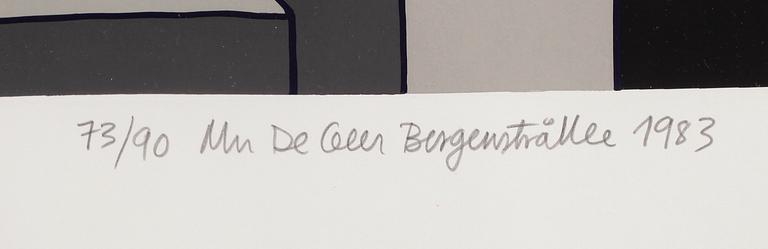 73/90 Mn De Geer Bergenstråhle 1983